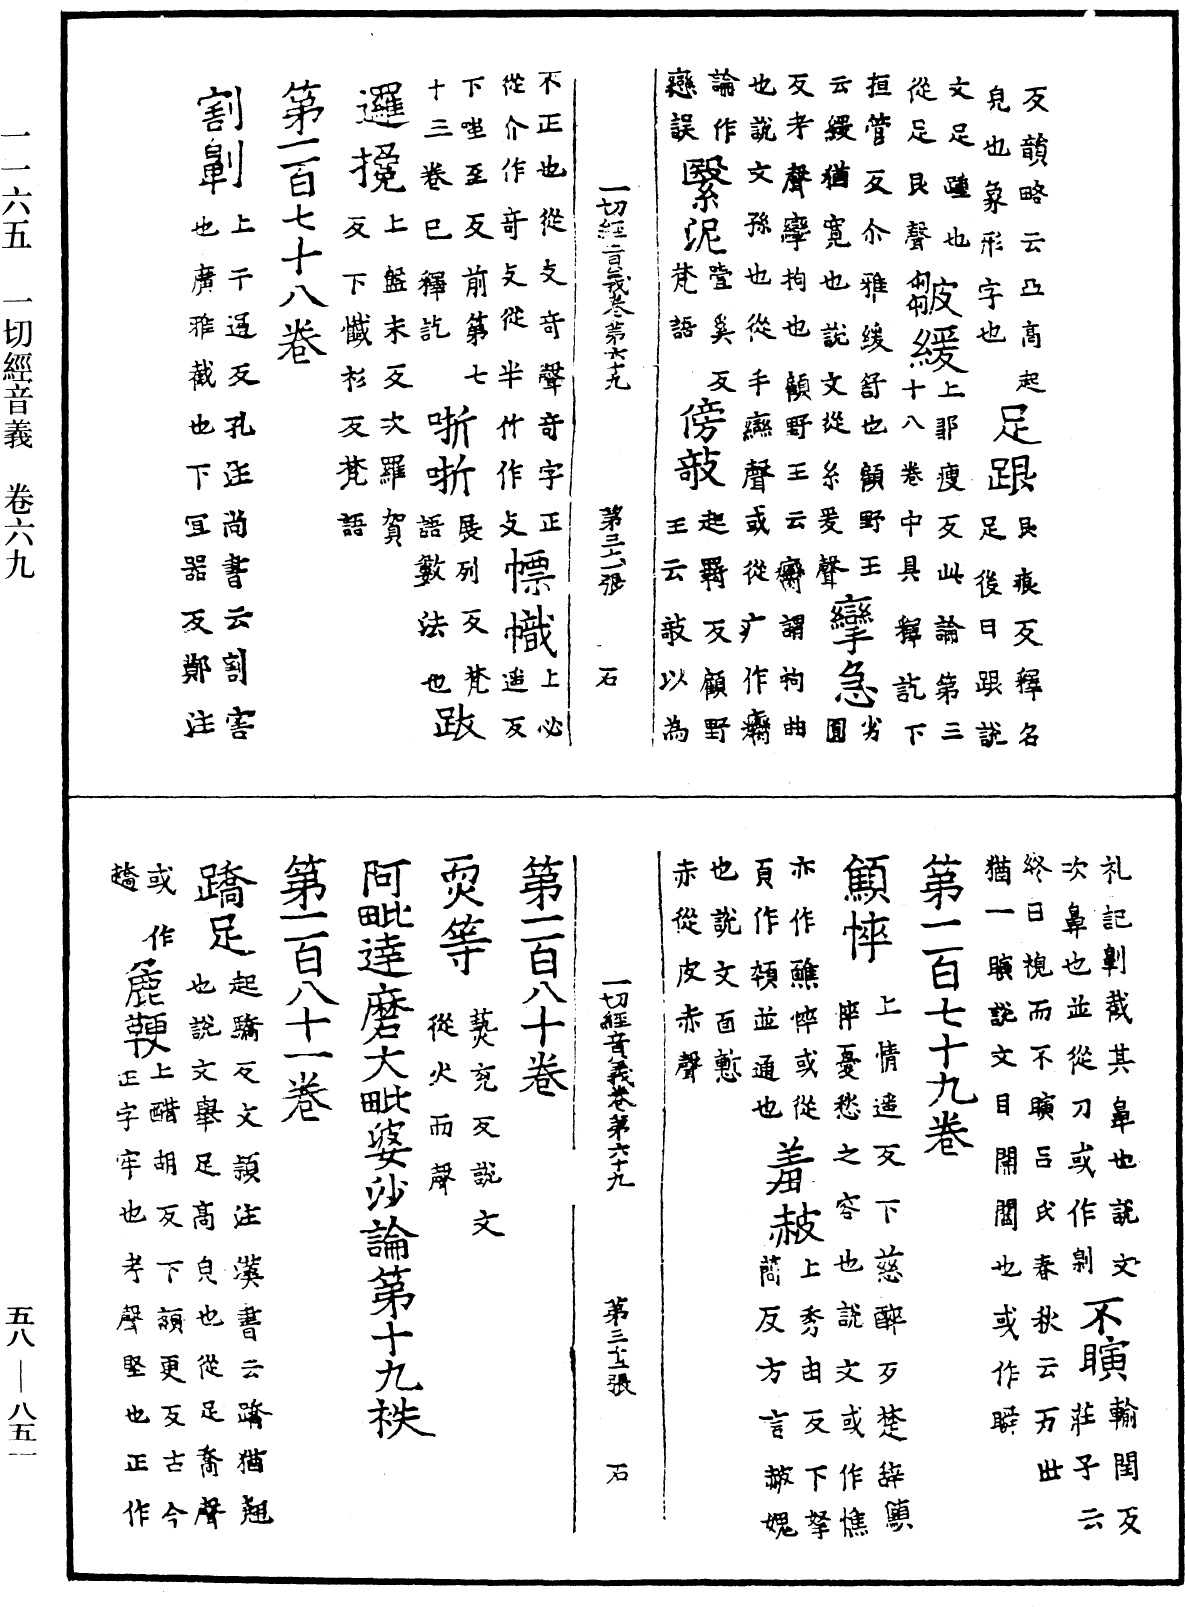 反韻略云亞高起
皃也象形字也 足跟 艮痕反釋名
文足踵也 足後曰跟說
從足艮聲 皺緩 上鄒瘦反此論第三
十八卷中具釋訖下
桓管反尒雅緩舒也顧野王
云緩猶寬也說文從糸爰聲 攣急 劣圓
反考聲攣拘也顧野王云癵謂拘曲
也說文孫也從手䜌聲或從疒作癵
論作
戀誤 繄泥 壹奚反
梵語 傍攲 起羇反顧野
王云攲以為
一切經音義卷第六十九 第三十六張 石
不正也從攴奇聲奇字正
從介作奇攴從半竹作攴 幖幟 上必遥反
下嗤至反前第七
十三卷已釋訖 喆喆 展列反梵
語數法也 跋
邏攙 上盤末反次羅賀
反下懺衫反梵語
第一百七十八卷
割劓 上干遏反孔注尚書云割害
也廣雅截也下冝器反鄭注
礼記劓截其鼻也說文
次鼻也並從刀或作劓 不瞚 輸閏反
莊子云
終日視而不瞚呂氏春秋云万世
猶一瞚說文目開閤也或作瞬
第一百七十九卷
顦悴 上情遥反下慈醉反楚辝顦
悴憂愁之容也說文或作憔
亦作醮悴或從
頁作顇並通也 羞赧 上秀由反下拏
蕳反方言赧媿
也說文面慙
赤從皮赤聲
一切經音義卷第六十九 第三十七張 石
第一百八十卷
耎等 爇兖反說文
從火而聲
阿毗達磨大毗婆沙論第十九袟
第一百八十一卷
蹻足 起驕反文頴注漢書云蹻猶翹
也說文舉足高皃也從足喬聲
或作
蹺 麁鞕 上醋胡反下額更反古今
正字牢也考聲堅也正作
一一六五 一切經音義 卷六九
五八—八五一